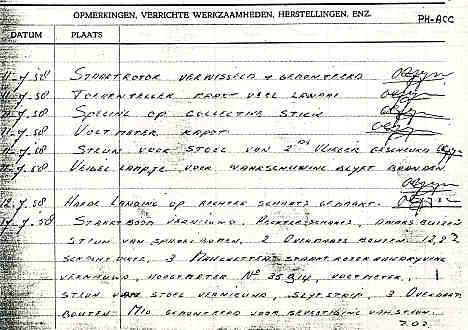 OPMERKINGEN, VERRICHTE WERKZAAMHEDEN, HERSTELLINGEN, ENZ.
PH-ACC
DATUM PLAATS
11-7-58 STAARTROTOR VERWISSELD + GEMONTEERD
11-7-58 TOERENTELLER
11-7-58 SPELING OP COLLECTIVE STICK
11-7-58 VOLTMETER KAPOT
11-7-58 STEUN VOOR STOEL VAN 2DE VLIEGER GESCHEURD
11-7-58 VEILIG LAMPJE VOOR WAARSCHUWING BLYFT BRANDEN
12-7-58 HARDE LANDING OP RECHTER SCHAATS GEMAAKT.
14-7-58 STAARTBOOM VERNIEUWD, RECHTER SCHAATS, DWARS BUIZEN
STEUN VAN 2 OVERMAATS BOUTEN
3 MANCHETTEN STAARTROTOR AANDRYVING
VERNIEUWD, HOOGTEMETER No 35314, VOLTMETER,
STEUN VAN STOEL VERNIEUWD, SLYTSTRIP, 3 OVERMAAT
BOUTEN M10 GEMONTEERD VOOR BEVESTIGING VAN STEUN